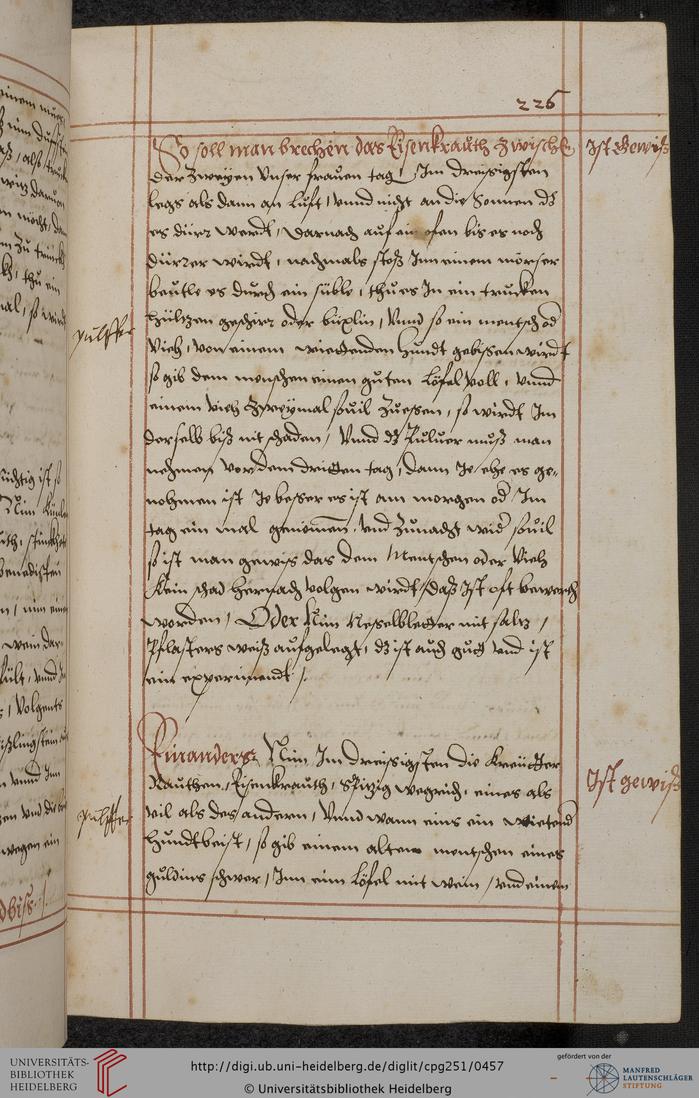 226
So soll man brechen das Eisenkrauth zwische
Ist Gewiß
der zweyen Unser frauen tag, Im dreissigsten
legs als dann an lufft, vnnd nicht an die Sonnen dz
es dürr werdt, darnach auf ein ofen bis es noch
dürrer wirdt, nachmals stoß Inn einem mörser
beutle es durch ein süble, thu es In ein trucken
hültzen geschirr oder büxlin, Vnnd so ein mentsch od
pulffer
Vieh, von einem wiettenden hundt gebissen wirdt
so gib dem menschen einen guten löfel voll, vnnd
einem Vieh zweymal souil zuessen, so wirdt Im
derselb biß nit schaden, Vnnd dz Puluer muß man
nehmen vor dem dritten tag, dann Je ehe es ge-
nohmen ist Je besser es ist am morgen od Im
tag ein mal genommen, vnd zunacht wid souil
so ist man gewiß das dem Mentschen oder Vieh
kein schad hernach volgen wirdt, daß Ist oft bewerth
worden, Oder Nim Nesselbletter mit saltz,
Pflasters weiß aufgelegt, dz ist auch gutt vnd ist
ein experimendt.
Ein anders, Nim Im dreissigsten die Kreütter
Ist gewiß
Rauthen, Eisenkrauth, Spitzig wegrich, eines als
vil als des andern, Vnnd wann eins ein wietend
pulffer
hundt beist, so gib einem alten mentschen eines
guldins schwer, Inn eim löfel mit wein, vnd einem
UNIVERSITÄTS-
BIBLIOTHEK
HEIDELBERG
http://digi.ub.uni-heidelberg.de/diglit/cpg251/0457
© Universitätsbibliothek Heidelberg
gefördert von der
MANFRED
LAUTENSCHLÄGER
STIFTUNG